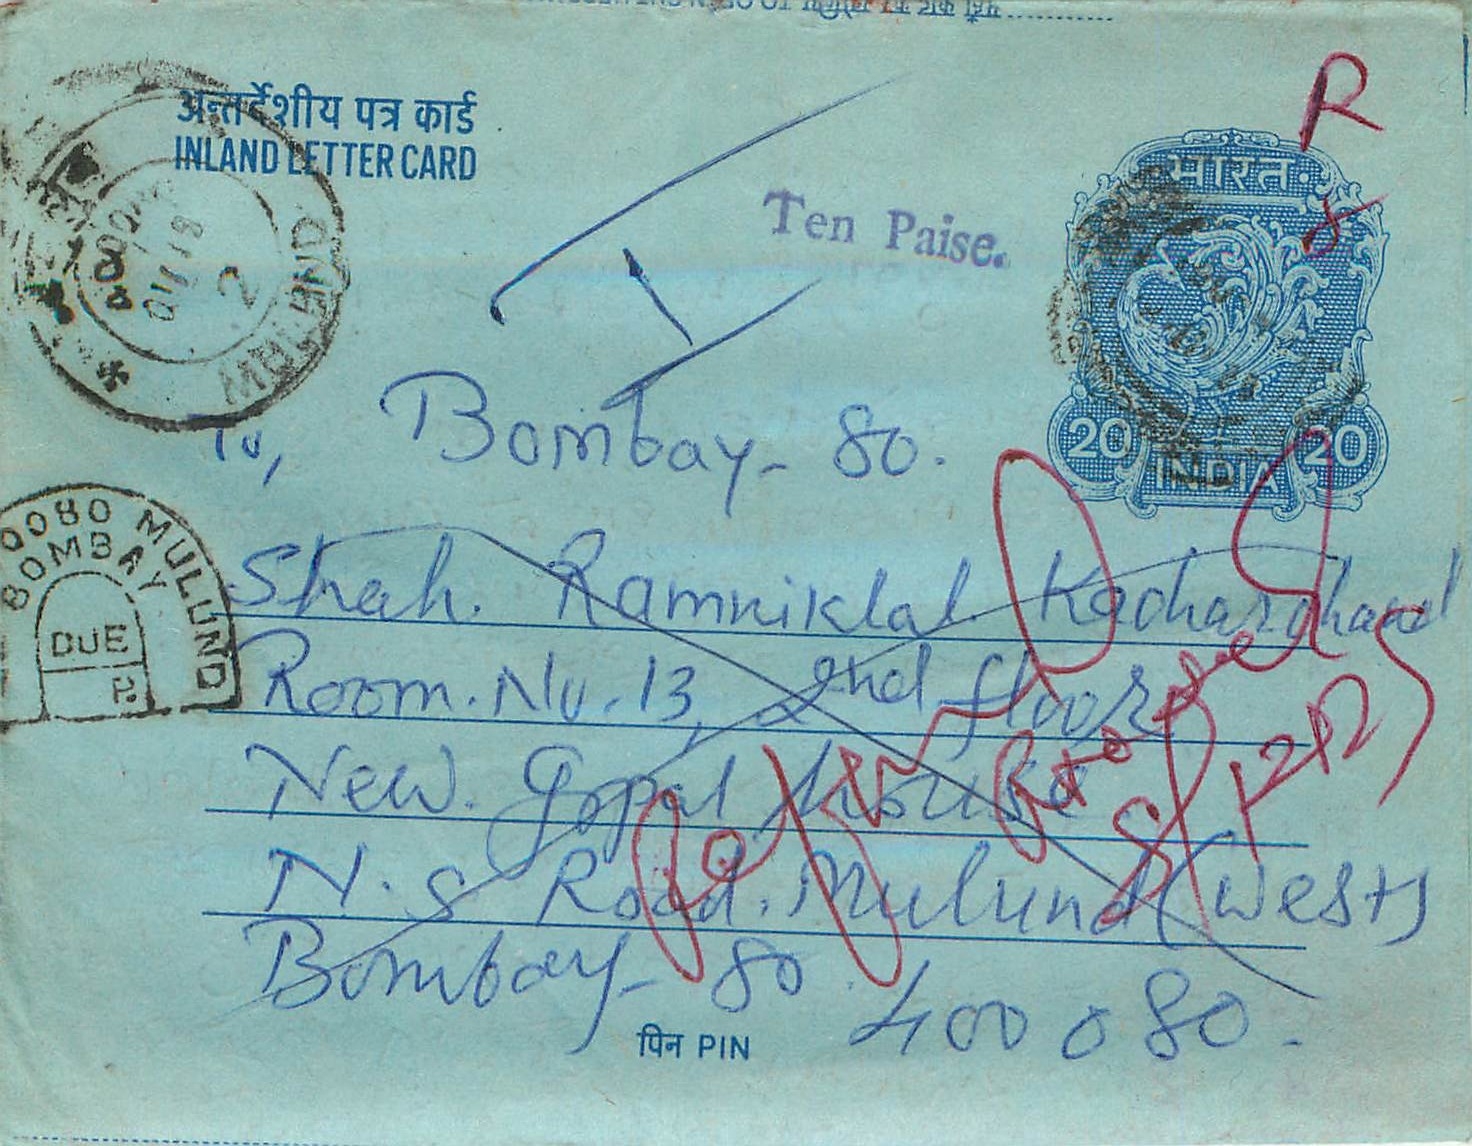 अन्तर्देशीय पत्र कार्ड
INLAND LETTER CARD
भारत
R
Ten Paise.
20 INDIA 20
MULUND
To,
Bombay - 80.
MULUND
BOMBAY
DUE
P.
Shah. Ramniklal Kacharchand
Room. No. 13, 2nd floor
New. Gopal house
N. S Road. Mulund (West)
Bombay - 80.
400080.
पिन PIN
Refused